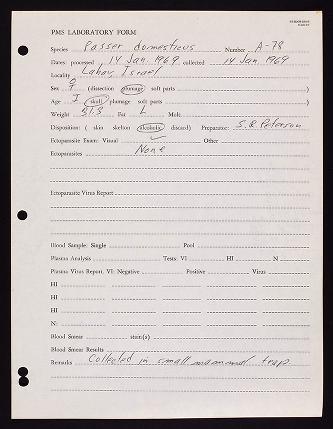 PMS LABORATORY FORM
Species Passer domesticus Number A-78
Dates: processed 14 Jan. 1969 collected 14 Jan 1969
Locality Lahav Israel
Sex ♀ (dissection plumage soft parts )
Age I (skull plumage soft parts )
Weight Fat L Molt
Disposition: ( skin skeleton alcoholic discard) Preparator: S. R. Peterson
Ectoparasite Exam: Visual ✓ Other
Ectoparasites None
Ectoparasite Virus Report
Blood Sample: Single Pool
Plasma Analysis Tests: VI HI N
Plasma Virus Report, VI: Negative Positive Virus
HI
HI
HI
N:
Blood Smear stain(s)
Blood Smear Results
Remarks Collected in small mammal trap